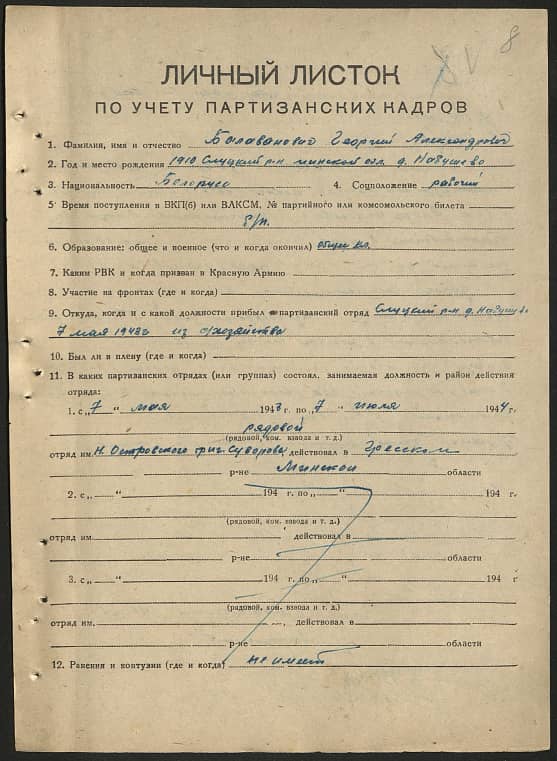 8
ЛИЧНЫЙ ЛИСТОК
ПО УЧЕТУ ПАРТИЗАНСКИХ КАДРОВ
1. Фамилия, имя и отчество Балаванович Георгий Александрович
2. Год и место рождения 1910 Слуцкий р-н Минской обл. д.
3. Национальность Белорус 4. Соцположение рабочий
5. Время поступления в ВКП(б) или ВЛКСМ, № партийного или комсомольского билета
б/п.
6. Образование: общее и военное (что и когда окончил) общее кл.
7. Каким РВК и когда призван в Красную Армию
8. Участие на фронтах (где и когда)
9. Откуда, когда и с какой должности прибыл в партизанский отряд Слуцкий р-н д.
7 мая 1943г из с/хозяйства
10. Был ли в плену (где и когда)
11. В каких партизанских отрядах (или группах) состоял, занимаемая должность и район действия
отряда:
1. с „7“ мая 1943 г. по „7“ июля 1944 г.
рядовой
(рядовой, ком. взвода и т. д.)
отряд им. Н. Островского бриг. Суворова, действовал в Гресском
р-не Минской области
2. с „ “ 194 г. по „ “ 194 г.
(рядовой, ком. взвода и т. д.)
отряд им. действовал в
р-не области
3. с „ “ 194 г. по „ “ 194 г
(рядовой, ком. взвода и т. д.)
отряд им. , действовал в
р-не области
12. Ранения и контузии (где и когда) не имеет